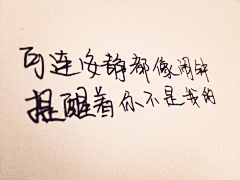 可连安静都像闹钟
提醒着你不是我的